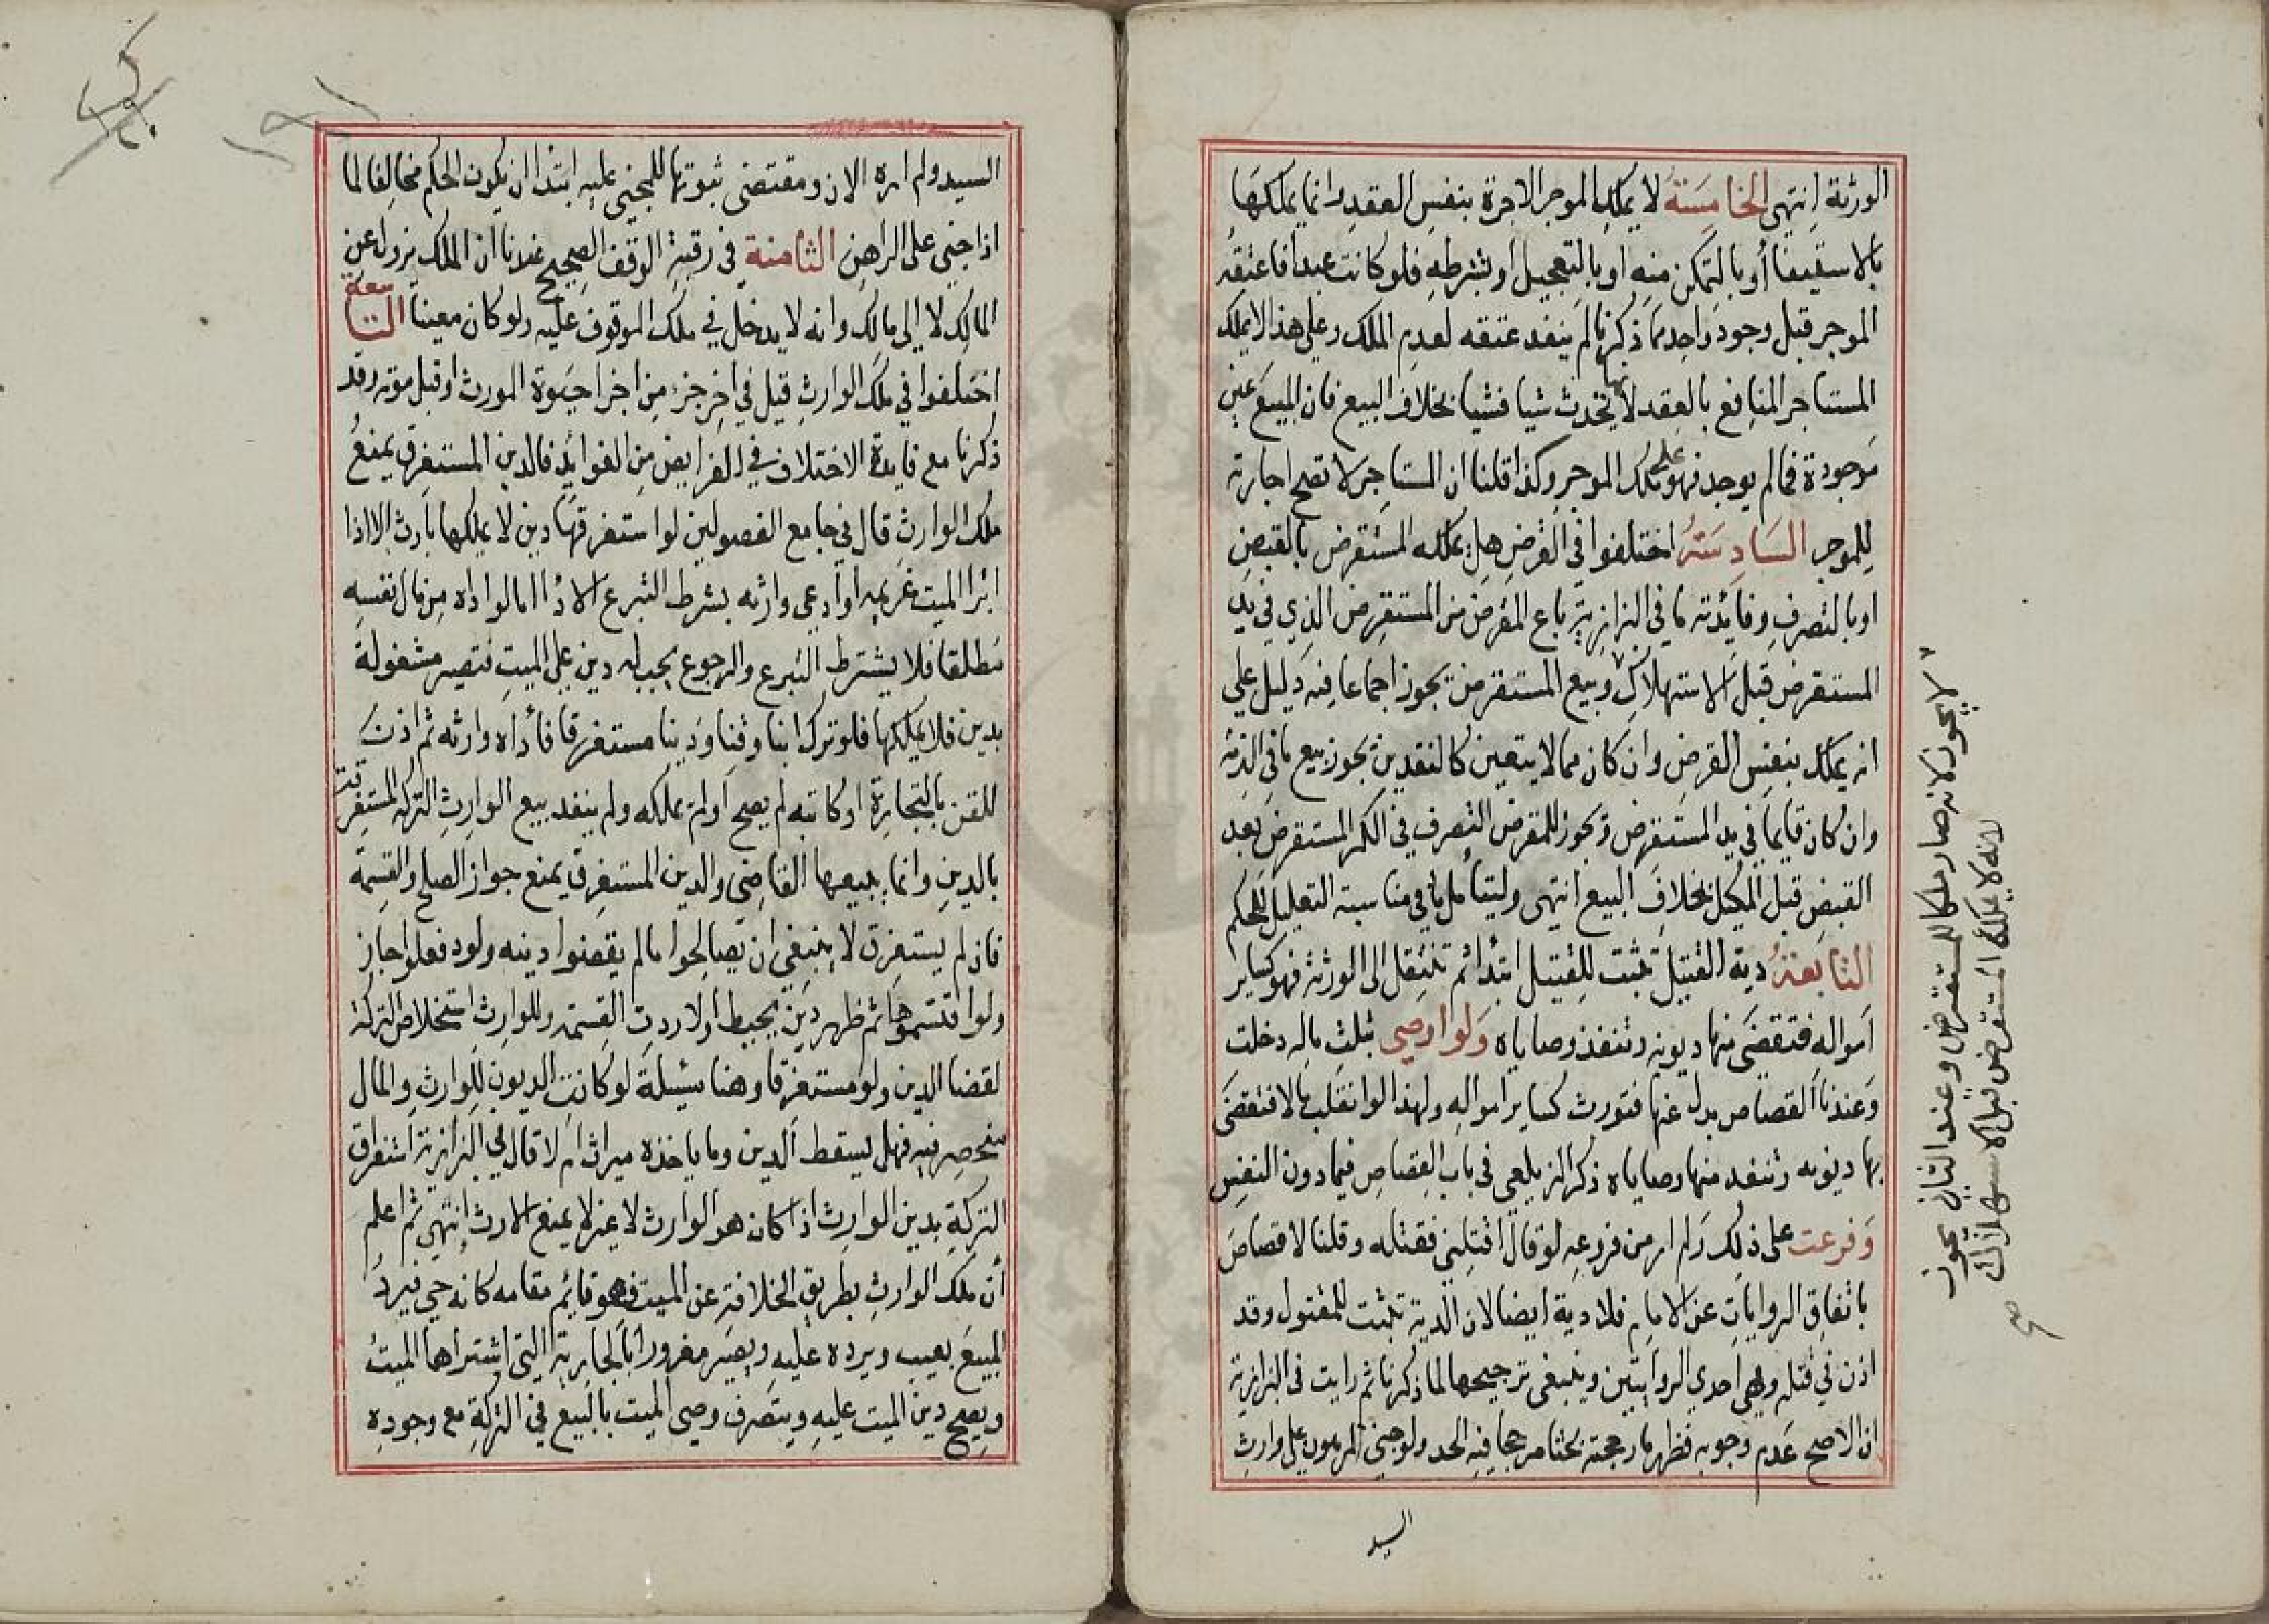 الورثة انتهى الخامسة لا يملك الموجر الاجرة بنفس العقد وانما يملكها
بالاستيفا أو بالتمكن منه او بالتعجيل او بشرطه فلو كانت عبدا فاعتقه
الموجر قبل وجود واحد مما ذكرنا لم ينفد عتقه لعدم الملك وعلى هذا لا يملك
المستاجر المنافع بالعقد لانها تحدث شيا فشيا بخلاف البيع فان المبيع عين
موجودة فما لم يوجد فهو على ملك الموجر وكذا قلنا ان المستاجر لا تصح اجارته
للموجر السادسة اختلفوا في القرض هل يملكه المستقرض بالقبض
او بالتصرف وفائدته ما في البزازية باع المقرض من المستقرض الذي في يد
المستقرض قبل الاستهلاك وبيع المستقرض يجوز اجماعا فيه دليل على
انه يملك بنفس القرض وان كان مما لا يتعين كالنقدين يجوز بيع ما في الذمة
وان كان قايما في يد المستقرض ويجوز للمقرض التصرف في الكر المستقرض بعد
القبض قبل الكيل بخلاف البيع انتهى وليتأمل في مناسبة التعليل للحكم
السابعة دية القتيل تثبت للقتيل ابتدا ثم تنتقل الى الورثة فهو كساير
امواله فتقضى منها ديونه وتنفذ وصاياه ولو اوصى بثلث ماله دخلت
وعندنا القصاص بدل عنها فتورث كساير امواله ولهذا لو انقلب مالا فتقضى
بها ديونه وتنفد منها وصاياه ذكر الزيلعي في باب القصاص فيما دون النفس
وفرعت على ذلك ولم ار من فرعه لو قال اقتلني فقتله وقلنا لا قصاص
باتفاق الروايات عن الامام فلا دية ايضا لان الدية تثبت للمقتول وقد
اذن في قتله وهي احدي الروايتين وينبغي ترجيحها لما ذكرنا ثم رايت في البزازية
ان الاصح عدم وجوبه فظهر ما رجحته بحثا مرجحا فيه الحد ولو جنى المرهون على وارث
السيد
لا يجوز لانه صار ملكا للمستقرض وعند الثاني يجوز
لانه لا يملكه المستقرض قبل الاستهلاك
صح
السيد ولم اره الان ومقتضى ثبوتها للمجني عليه ابتدا ان يكون الحكم مخالفا لما
اذا جني على الراهن الثامنة في رقبة الوقف الصحيح عندنا ان الملك يزول عن
المالك لا الى مالك وانه لا يدخل في ملك الموقوف عليه ولو كان معينا التاسعة
اختلفوا في ملك الوارث قيل في اخر جزء من اجزا حيوة المورث او قبل موته وقد
ذكرنا مع فايدة الاختلاف في الفرايض من الفوائد فالدين المستغرق يمنع
ملك الوارث قال في جامع الفصولين لو استغرقها دين لا يملكها بارث الا اذا
ابرا الميت غريمه او ادي وارثه بشرط التبرع الادا اما لو اداه من مال نفسه
مطلقا فلا يشترط التبرع والرجوع يجب له دين على الميت فتصير مشغولة
بدين فلا يملكها فلو ترك ابنا وقنا ودينا مستغرقا فأداه وارثه ثم اذن
للقن بالتجارة او كاتبه لم يصح اولم يملكه ولم ينفد بيع الوارث التركة المستغرقة
بالدين وانما يبيعها القاضى والدين المستغرق يمنع جواز الصلح والقسمة
فان لم يستغرق لا ينبغي ان يصالحوا ما لم يقضوا دينه ولو فعلوا جاز
ولو اقتسموها ثم ظهر دين يحيط اولا ردت القسمة وللوارث استخلاص التركة
لقضا الدين ولو مستغرقا وهنا مسئلة لو كانت الديون للوارث والمال
منحصر فيه فهل يسقط الدين وما ياخذه ميراث ام لا قال في البزازية استغراق
التركة بدين الوارث اذا كان هو الوارث لا غير لا يمنع الارث انتهى ثم اعلم
أن ملك الوارث بطريق الخلافة عن الميت فهو قائم مقامه كانه حي فيرد
المبيع بعيب ويرده عليه ويصير مغرورا بالجارية التي اشتراها الميت
ويصح دين الميت عليه ويتصرف وصي الميت بالبيع في التركة مع وجوده